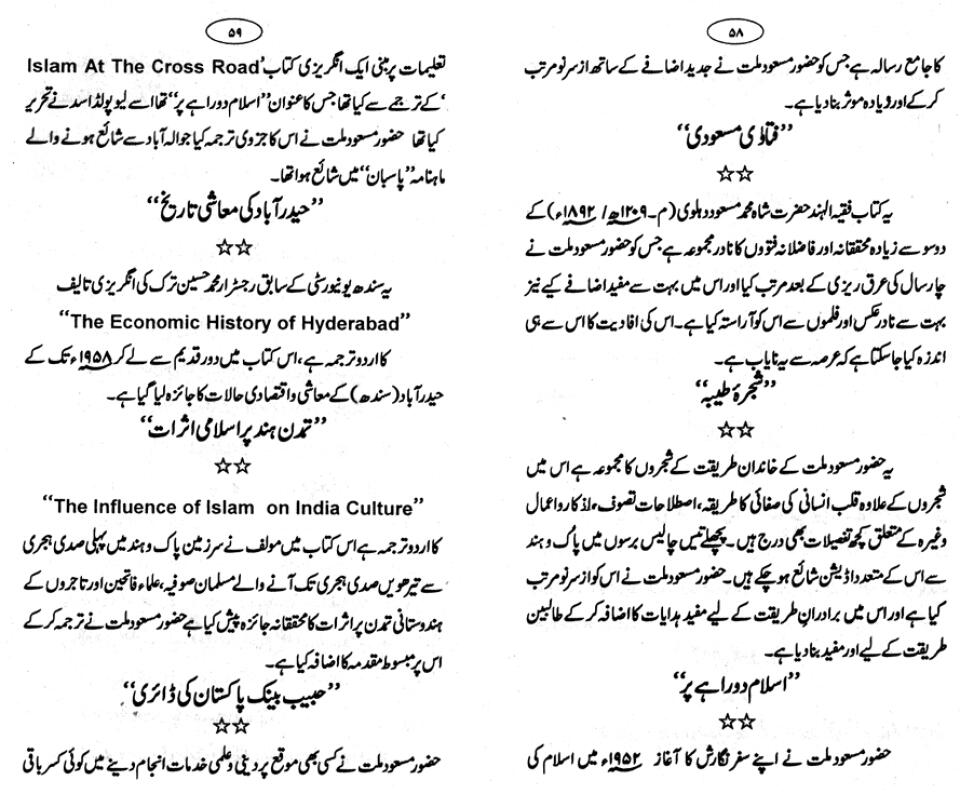 ۵۸
کا جامع رسالہ ہے جس کو حضور مسعود ملت نے جدید اضافے کے ساتھ از سر نو مرتب
کر کے اور زیادہ موثر بنا دیا ہے۔
”فتاوٰی مسعودی“
☆☆
یہ کتاب فقیہ الہند حضرت شاہ محمد مسعود دہلوی (م۔۱۳۰۹ھ/۱۸۹۲ء) کے
دو سو سے زیادہ محققانہ اور فاضلانہ فتوں کا نادر مجموعہ ہے جس کو حضور مسعود ملت نے
چار سال کی عرق ریزی کے بعد مرتب کیا اور اس میں بہت سے مفید اضافے کیے نیز
بہت سے نادر عکس اور فلموں سے اس کو آراستہ کیا ہے۔ اس کی افادیت کا اس سے ہی
اندزہ کیا جا سکتا ہے کہ عرصہ سے یہ نایاب ہے۔
”شجرۂ طیبہ“
☆☆
یہ حضور مسعود ملت کے خاندان طریقت کے شجروں کا مجموعہ ہے اس میں
شجروں کے علاوہ قلب انسانی کی صفائی کا طریقہ، اصطلاحات تصوف، اذکار و اعمال
وغیرہ کے متعلق کچھ تفصیلات بھی درج ہیں۔ پچھلے تیس چالیس برسوں میں پاک و ہند
سے اس کے متعدد اڈیشن شائع ہو چکے ہیں۔ حضور مسعود ملت نے اس کو از سر نو مرتب
کیا ہے اور اس میں برادرانِ طریقت کے لیے مفید ہدایات کا اضافہ کر کے طالبین
طریقت کے لیے اور مفید بنا دیا ہے۔
”اسلام دوراہے پر“
☆☆
حضور مسعود ملت نے اپنے سفر نگارش کا آغاز ۱۹۵۲ء میں اسلام کی
۵۹
تعلیمات پر مبنی ایک انگریزی کتاب ‘Islam At The Cross Road
‘ کے ترجمے سے کیا تھا جس کا عنوان ”اسلام دوراہے پر“ تھا اسے لیوپولڈ اسد نے تحریر
کیا تھا حضور مسعود ملت نے اس کا جزوی ترجمہ کیا جو الہ آباد سے شائع ہونے والے
ماہنامہ ”پاسبان“ میں شائع ہوا تھا۔
”حیدرآباد کی معاشی تاریخ“
☆☆
یہ سندھ یونیورسٹی کے سابق رجسٹرار محمد حسین ترک کی انگریزی تالیف
“The Economic History of Hyderabad”
کا اردو ترجمہ ہے، اس کتاب میں دور قدیم سے لے کر ۱۹۵۸ء تک کے
حیدرآباد (سندھ) کے معاشی و اقتصادی حالات کا جائزہ لیا گیا ہے۔
”تمدن ہند پر اسلامی اثرات“
☆☆
“The Influence of Islam on India Culture”
کا اردو ترجمہ ہے اس کتاب میں مولف نے سرزمین پاک و ہند میں پہلی صدی ہجری
سے تیرھویں صدی ہجری تک آنے والے مسلمان صوفیہ، علماء فاتحین اور تاجروں کے
ہندوستانی تمدن پر اثرات کا محققانہ جائزہ پیش کیا ہے حضور مسعود ملت نے ترجمہ کر کے
اس پر مبسوط مقدمہ کا اضافہ کیا ہے۔
”حبیب بینک پاکستان کی ڈائری“
☆☆
حضور مسعود ملت نے کسی بھی موقع پر دینی و علمی خدمات انجام دینے میں کوئی کسر باقی